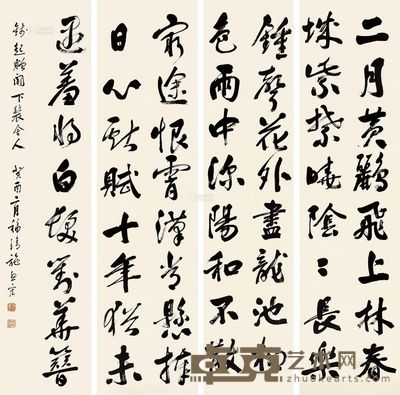 二月黃鸝飛上林春
城紫禁曉陰〻長樂
鍾聲花外盡龍池柳
色雨中深陽和不散
窮途恨霄漢常懸捧
日心獻賦十年猶未
遇羞將白髮對華簪
錢起贈闕下裴舍人 癸酉二月福清施宗
艺术网